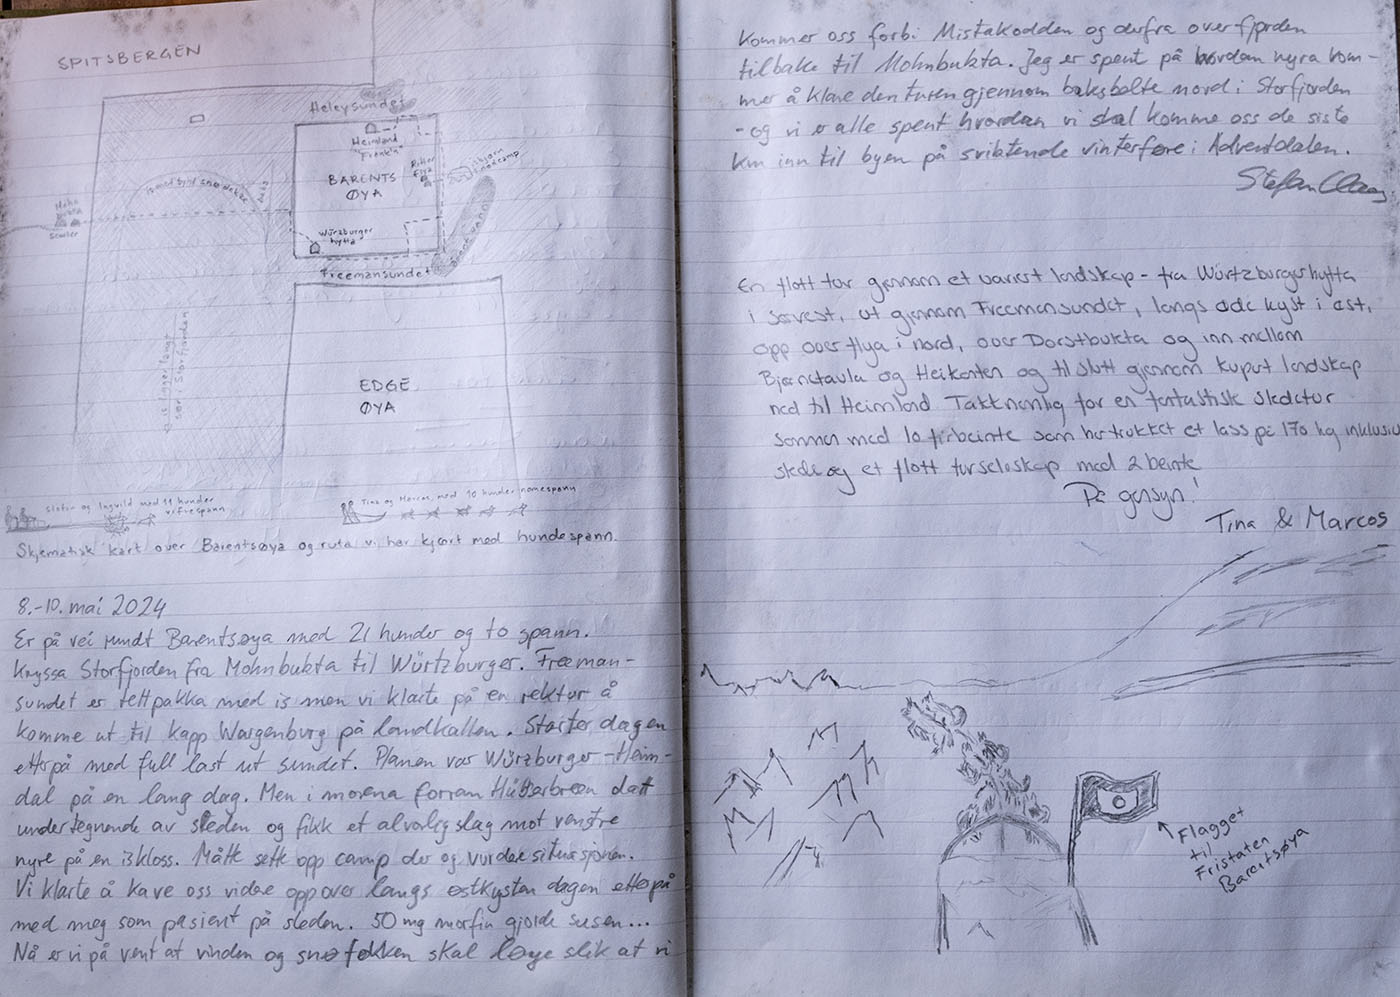 SPITSBERGEN
Heleysundet
Heimland
"Frankn"
BARENTS
ØYA
Isbjørn
nødcamp
Is med tynt snødekke
Mohn
bukta
Scooter
Würzburger
hytta
Åpent vann
Freemansundet
Is ligger langt
sør i Storfjorden
EDGE
ØYA
Stefan og Ingvild med 11 hunder
i viftespann
Tina og Marcos, med 10 hunder nomespann
Skjematisk kart over Barentsøya og ruta vi har kjørt med hundespann.
8.-10. mai 2024
Er på vei rundt Barentsøya med 21 hunder og to spann.
Kryssa Storfjorden fra Mohnbukta til Würtzburger. Freeman-
sundet er tettpakka med is men vi klarte på en rektur å
komme ut til kapp Waigenburg på landkallen. Starter dagen
etterpå med full last ut sundet. Planen var Würzburger-Heim-
dal på en lang dag. Men i morena forran Hübnerbreen datt
undertegnende av sleden og fikk et alvorlig slag mot venstre
nyre på en iskloss. Måtte sette opp camp der og vurdere situasjonen.
Vi klarte å kave oss videre oppover langs østkysten dagen etterpå
med meg som pasient på sleden. 50 mg morfin gjorde susen...
Nå er vi på vent at vinden og snøfokken skal løye slik at vi
kommer oss forbi Mistakodden og derfra over fjorden
tilbake til Mohnbukta. Jeg er spent på hvordan nyra kom-
mer å klare den turen gjennom baksbalte nord i Storfjorden
- og vi er alle spent hvordan vi skal komme oss de siste
km inn til byen på sviktende vinterføre i Adventdalen.
Stefan
En flott tur gjennom et variert landskap - fra Würtzburgerhytta
i sørvest, ut gjennom Freemansundet, langs øde kyst i øst,
opp over flya i nord, over Dorstbukta og inn mellom
Bjørnetavla og Heikanten og til slutt gjennom kupert landskap
ned til Heimland Takknemlig for en fantastisk skidetur
sammen med 10 firbeinte som har trukket et lass på 170 kg inklusiv
slede og et flott turselskap med 2 beinte
På gjensyn!
Tina & Marcos
Flagget
til
Fristaten
Barentsøya